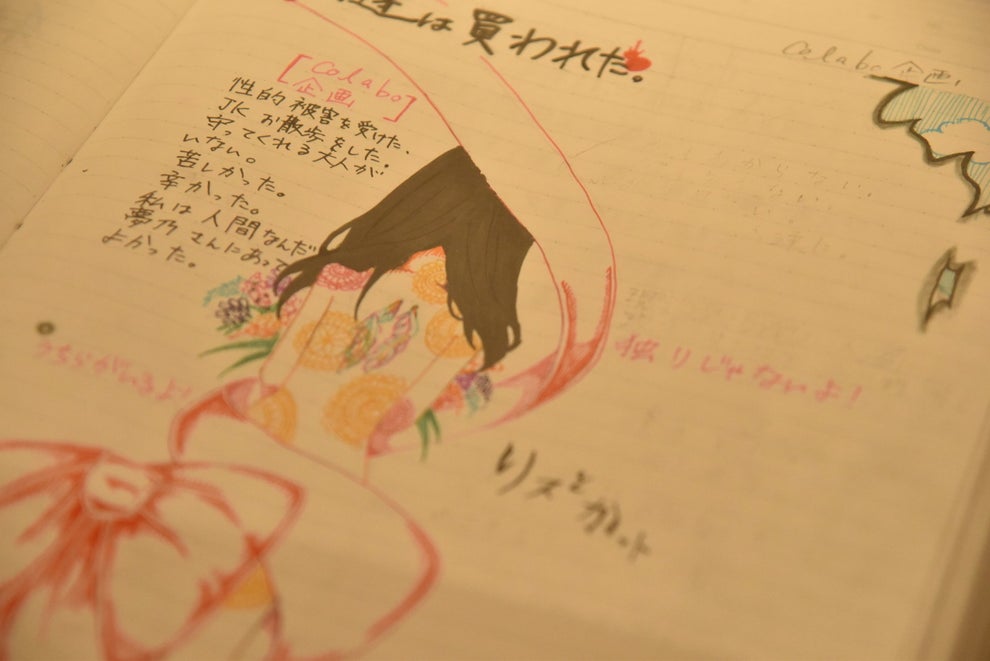 は買われた。
Colabo企画
[Colabo
企画]
性的被害を受けた、
JKお散歩をした。
守ってくれる大人が
いない。
苦しかった。
辛かった。
私は人間なんだ
夢乃さんにあって
よかった。
うちらがいるよ!
独りじゃないよ!